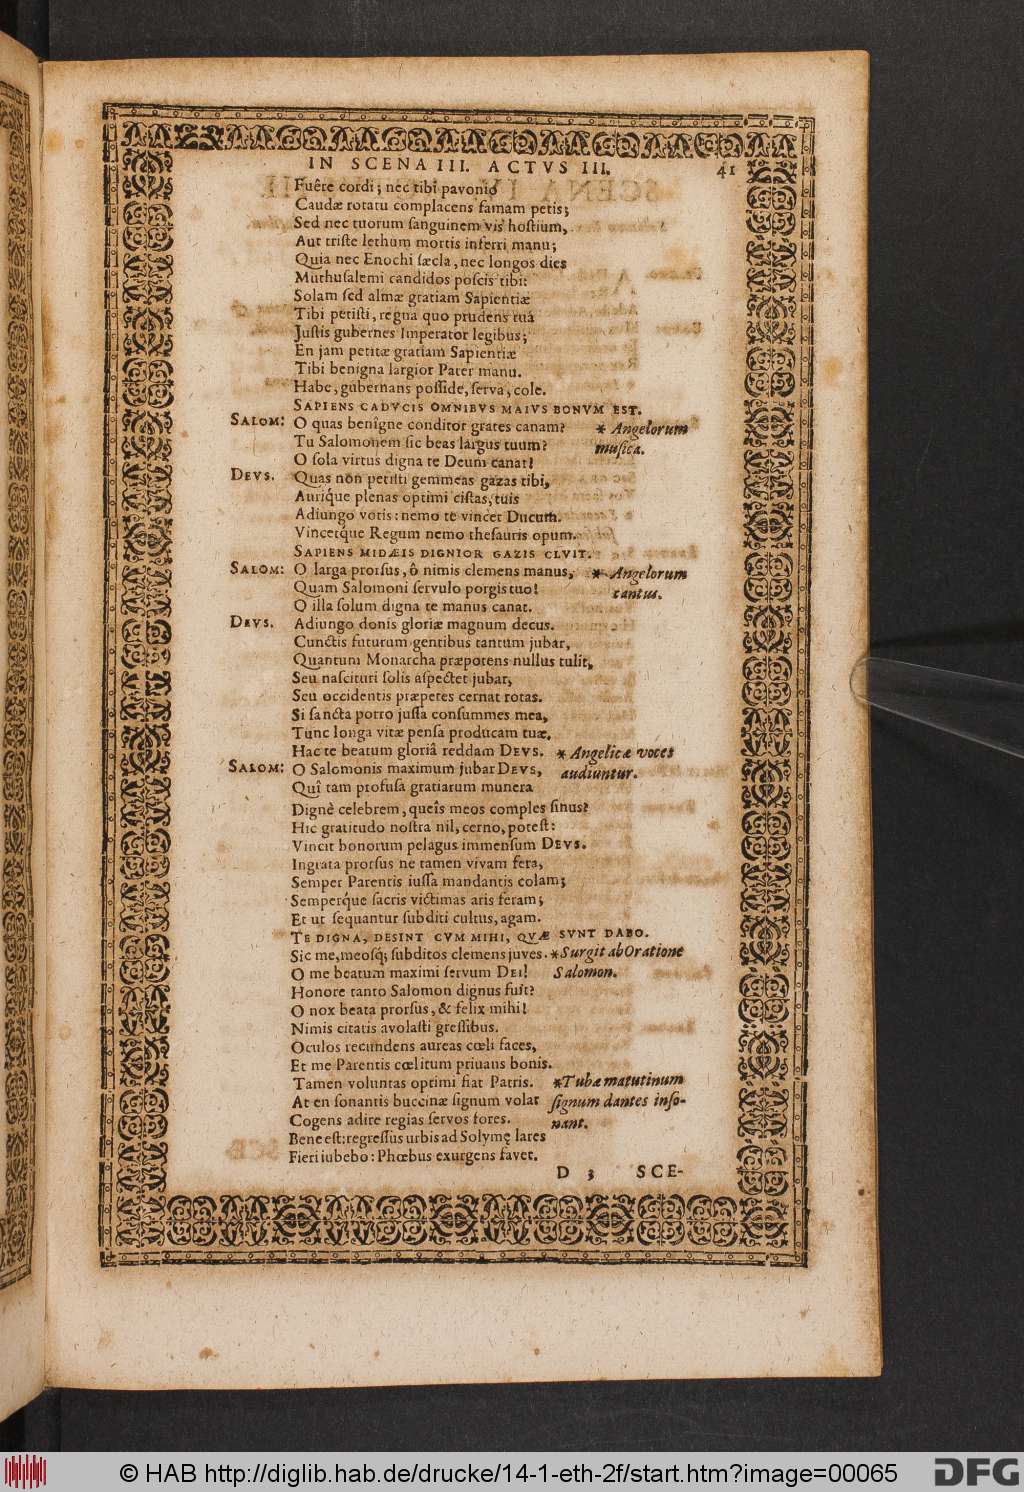 IN SCENA III. ACTVS III. 41
Fuêre cordi; nec tibi pavonio
Caudæ rotatu complacens famam petis;
Sed nec tuorum sanguinem vis hostium,
Aut triste lethum mortis inferri manu;
Quia nec Enochi sæcla, nec longos dies
Muthusalemi candidos poscis tibi:
Solam sed almæ gratiam Sapientiæ
Tibi petisti, regna quo prudens tuâ
Justis gubernes Imperator legibus;
En jam petitæ gratiam Sapientiæ
Tibi benigna largior Pater manu.
Habe, gubernans posside, serva, cole.
SAPIENS CADVCIS OMNIBVS MAIVS BONVM EST.
SALOM: O quas benigne conditor grates canam? * Angelorum
Tu Salomonem sic beas largus tuum? musica.
O sola virtus digna te Deum canat!
DEVS. Quas non petisti gemmeas gazas tibi,
Aurique plenas optimi cistas, tuis
Adiungo votis: nemo te vincet Ducum.
Vincetque Regum nemo thesauris opum.
SAPIENS MIDÆIS DIGNIOR GAZIS CLVIT.
SALOM: O larga prorsus, ô nimis clemens manus, * Angelorum
Quam Salomoni servulo porgis tuo! cantus.
O illa solum digna te manus canat.
DEVS. Adiungo donis gloriæ magnum decus.
Cunctis futurum gentibus tantum jubar,
Quantum Monarcha præpotens nullus tulit,
Seu nascituri solis aspectet jubar,
Seu occidentis præpetes cernat rotas.
Si sancta porro jussa consummes mea,
Tunc longa vitæ pensa producam tuæ,
Hac te beatum gloriâ reddam DEVS. * Angelicæ voces
SALOM: O Salomonis maximum jubar DEVS, audiuntur.
Quî tam profusa gratiarum munera
Dignè celebrem, queîs meos comples sinus?
Hic gratitudo nostra nil, cerno, potest:
Vincit bonorum pelagus immensum DEVS.
Ingrata prorsus ne tamen vivam fera,
Semper Parentis iussa mandantis colam;
Semperque sacris victimas aris feram;
Et ut sequantur subditi cultus, agam.
TE DIGNA, DESINT CVM MIHI, QVÆ SVNT DABO.
Sic me, meosq; subditos clemens juves. * Surgit ab Oratione
O me beatum maximi servum DEI! Salomon.
Honore tanto Salomon dignus fuit?
O nox beata prorsus, & felix mihi!
Nimis citatis avolasti gressibus.
Oculos recundens aureas cœli faces,
Et me Parentis cœlitum priuans bonis.
Tamen voluntas optimi fiat Patris. * Tubæ matutinum
At en sonantis buccinæ signum volat signum dantes inso-
Cogens adire regias servos fores. nant.
Bene est: regressus urbis ad Solymę lares
Fieri iubebo: Phœbus exurgens favet.
D 3 SCE-
© HAB http://diglib.hab.de/drucke/14-1-eth-2f/start.htm?image=00065
DFG